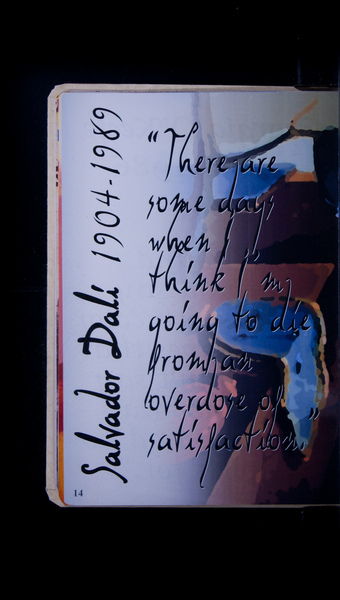 Salvador Dalí 1904-1989
"There are
some days
when I
think I'm
going to die
from an
overdose of
satisfaction."
14